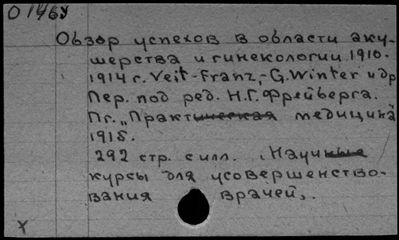 О 146у
Обзор успехов в области аку-
шерства и гинекологии 1910-
1914 г. Veit-Franz,- G. Winter и др
Пер. под ред. Н.Г. Фрейберга.
Пг. „Практическая медицина"
1915.
292 стр. с илл. (Научные
курсы для усовершенство-
вания врачей).